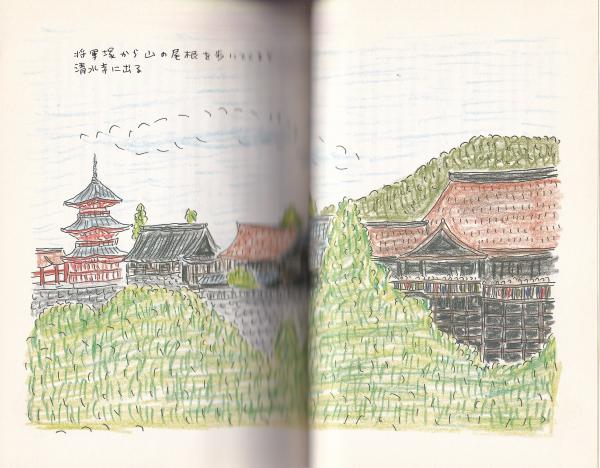 将軍塚から山の尾根を歩いて
清水寺に出る